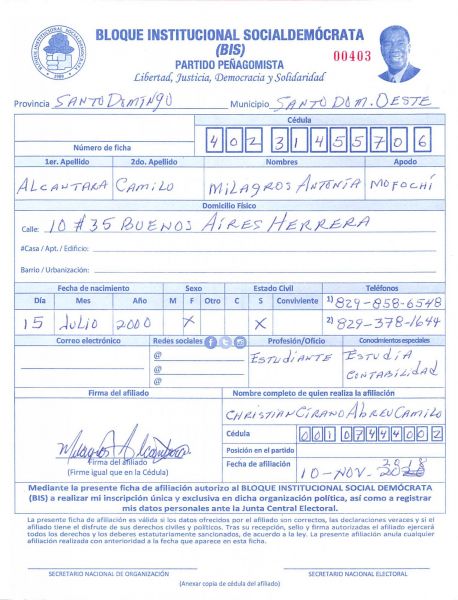 BLOQUE INSTITUCIONAL SOCIALDEMÓCRATA
(BIS)
00403
PARTIDO PEÑAGOMISTA
Libertad, Justicia, Democracia y Solidaridad
Provincia SANTO DOMINGO Municipio SANTO DOM. OESTE
Cédula
Número de ficha 40231455706
1er. Apellido 2do. Apellido Nombres Apodo
ALCANTARA CAMILO MILAGROS ANTONIA MOFOCHÍ
Domicilio Físico
Calle: 10 #35 BUENOS AIRES HERRERA
#Casa / Apt. / Edificio:
Barrio / Urbanización:
Fecha de nacimiento Sexo Estado Civil Teléfonos
Día Mes Año M F Otro C S Conviviente 1) 829-858-6548
15 JULIO 2000 X X 2) 829-378-1644
Correo electrónico Redes sociales Profesión/Oficio Conocimientos especiales
@ ESTUDIANTE ESTUDIA
@ CONTABILIDAD
@
Firma del afiliado Nombre completo de quien realiza la afiliación
CHRISTIAN CIRANO ABREU CAMILO
Cédula 00107444002
Milagros Alcántara
Firma del afiliado
(Firme igual que en la Cédula)
Posición en el partido
Fecha de afiliación 10-NOV-
Mediante la presente ficha de afiliación autorizo al BLOQUE INSTITUCIONAL SOCIAL DEMÓCRATA
(BIS) a realizar mi inscripción única y exclusiva en dicha organización política, así como a registrar
mis datos personales ante la Junta Central Electoral.
La presente ficha de afiliación es válida si los datos ofrecidos por el afiliado son correctos, las declaraciones veraces y si el
afiliado tiene el disfrute de sus derechos civiles y políticos. Tras su recepción, sello y firma autorizadas el afiliado ejercerá
todos los derechos y los deberes estatutariamente sancionados, de acuerdo a la ley. La presente afiliación anula cualquier
afiliación realizada con anterioridad a la fecha que aparece en esta ficha.
SECRETARIO NACIONAL DE ORGANIZACIÓN SECRETARIO NACIONAL ELECTORAL
(Anexar copia de cédula del afiliado)